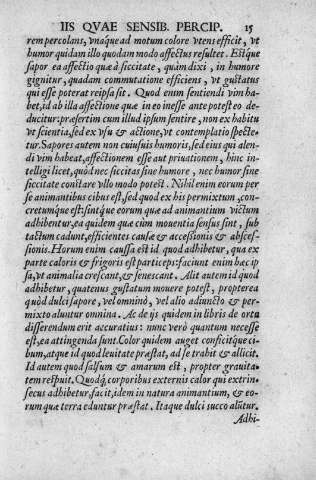 IIS QVAE SENSIB. PERCIP. 15
rem percolans, vnaque ad motum colore vtens efficit, vt
humor quidam illo quodam modo affectus resultet. Estque
sapor ea affectio quæ à siccitate, quàm dixi, in humore
gignitur, quadam commutatione efficiens, vt gustatus
qui esse poterat reipsa sit. Quod enim sentiendi vim ha-
bet, id ab illa affectione quæ in eo inesse ante potest eo de-
ducitur: præsertim cum illud ipsum sentire, non ex habitu
vt scientia, sed ex vsu & actione, vt contemplatio specte-
tur. Sapores autem non cuiusuis humoris, sed eius qui alen-
di vim habeat, affectionem esse aut priuationem, hinc in-
telligi licet, quòd nec siccitas sine humore, nec humor sine
siccitate constare vllo modo potest. Nihil enim eorum per
se animantibus cibus est, sed quod ex his permixtum, con-
cretumque est: sintque eorum quæ ad animantium victum
adhibentur, ea quidem quæ cùm mouentia sensus sint, sub
tactum cadunt, efficientes causæ & accessionis & absces-
sionis. Horum enim caussa est id quod adhibetur, qua ex
parte caloris & frigoris est particeps: faciunt enim hæc ip
sa, vt animalia crescant, & senescant. Alit autem id quod
adhibetur, quatenus gustatum mouere potest, propterea
quòd dulci sapore, vel omnino, vel alio adiuncto & per-
mixto aluntur omnina. Ac de ijs quidem in libris de ortu
disserendum erit accuratius: nunc verò quantum necesse
est, ea attingenda sunt. Color quidem auget conficitque ci-
bum, atque id quod leuitate præstat, ad se trahit & allicit.
Id autem quod salsum & amarum est, propter grauita-
tem respuit. Quodq́; corporibus externis calor qui extrin-
secus adhibetur, facit, idem in natura animantium, & eo-
rum quæ terra eduntur præstat. Itaque dulci succo alũtur.
Adhi-